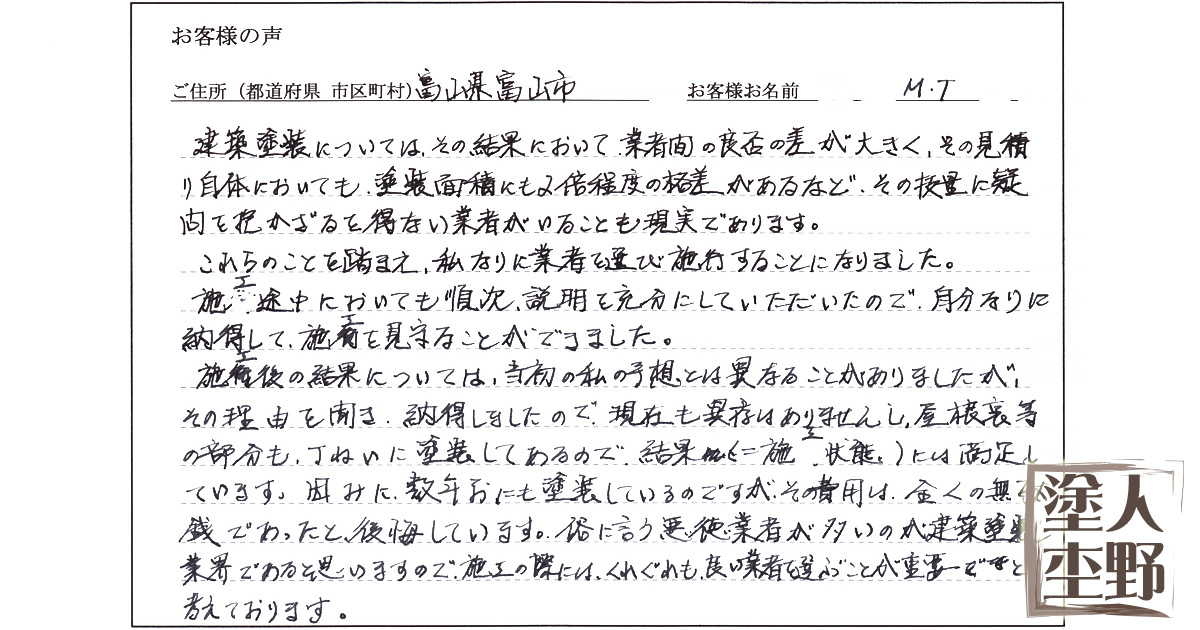 お客様の声
ご住所（都道府県 市区町村）富山県富山市 お客様お名前 M.T
建築塗装については、その結果において、業者間の良否の差が大きく、その見積
り自体においても、塗装面積にも2倍程度の格差があるなど、その技量に疑
問を抱かざるを得ない業者がいることも現実であります。
これらのことを踏まえ、私なりに業者を選び施行することになりました。
施工途中においても順次、説明を充分にしていただいたので、自分なりに
納得して、施工を見守ることができました。
施工後の結果については、当初の私の予想とは異なることがありましたが、
その理由を聞き、納得しましたので、現在も異存はありませんし、屋根裏等
の部分も、丁ねいに塗装してあるので、結果(=施工状態。)には満足し
ています。因みに、数年前にも塗装しているのですが、その費用は、全くの無
銭であったと、後悔しています。俗に言う悪徳業者が多いのが建築塗装
業界であると思いますので、施工の際には、くれぐれも、良い業者を選ぶことが重要であると
考えております。
塗人
圭野